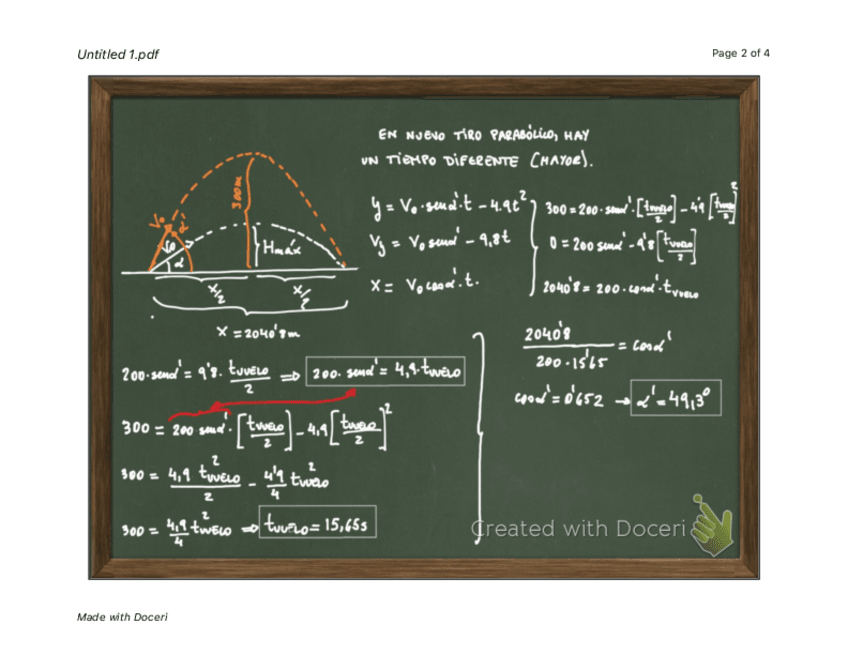 Untitled 1.pdf
Page 2 of 4
EN NUEVO TIRO PARABÓLICO, HAY
UN TIEMPO DIFERENTE (MAYOR).
300m
V₀ α'
V₀
α
Hmáx
x/2 x/2
x = 2040'8m
y = V₀·senα'·t – 4.9t²
Vy = V₀ senα' – 9,8t
x = V₀ cosα'·t.
300 = 200·senα'·[tvuelo/2] – 4'9 [tvuelo/2]²
0 = 200 senα' – 9'8 [tvuelo/2]
2040'8 = 200·cosα'·tvuelo
200·senα' = 9'8·tvuelo/2 ⇒ 200·senα' = 4,9·tvuelo
300 = 200 senα'·[tvuelo/2] – 4,9 [tvuelo/2]²
300 = 4,9 tvuelo²/2 – 4'9/4 tvuelo²
300 = 4,9/4 tvuelo² ⇒ tvuelo = 15,65s
2040'8/200·15'65 = cosα'
cosα' = 0'652 → α' = 49,3°
Created with Doceri
Made with Doceri